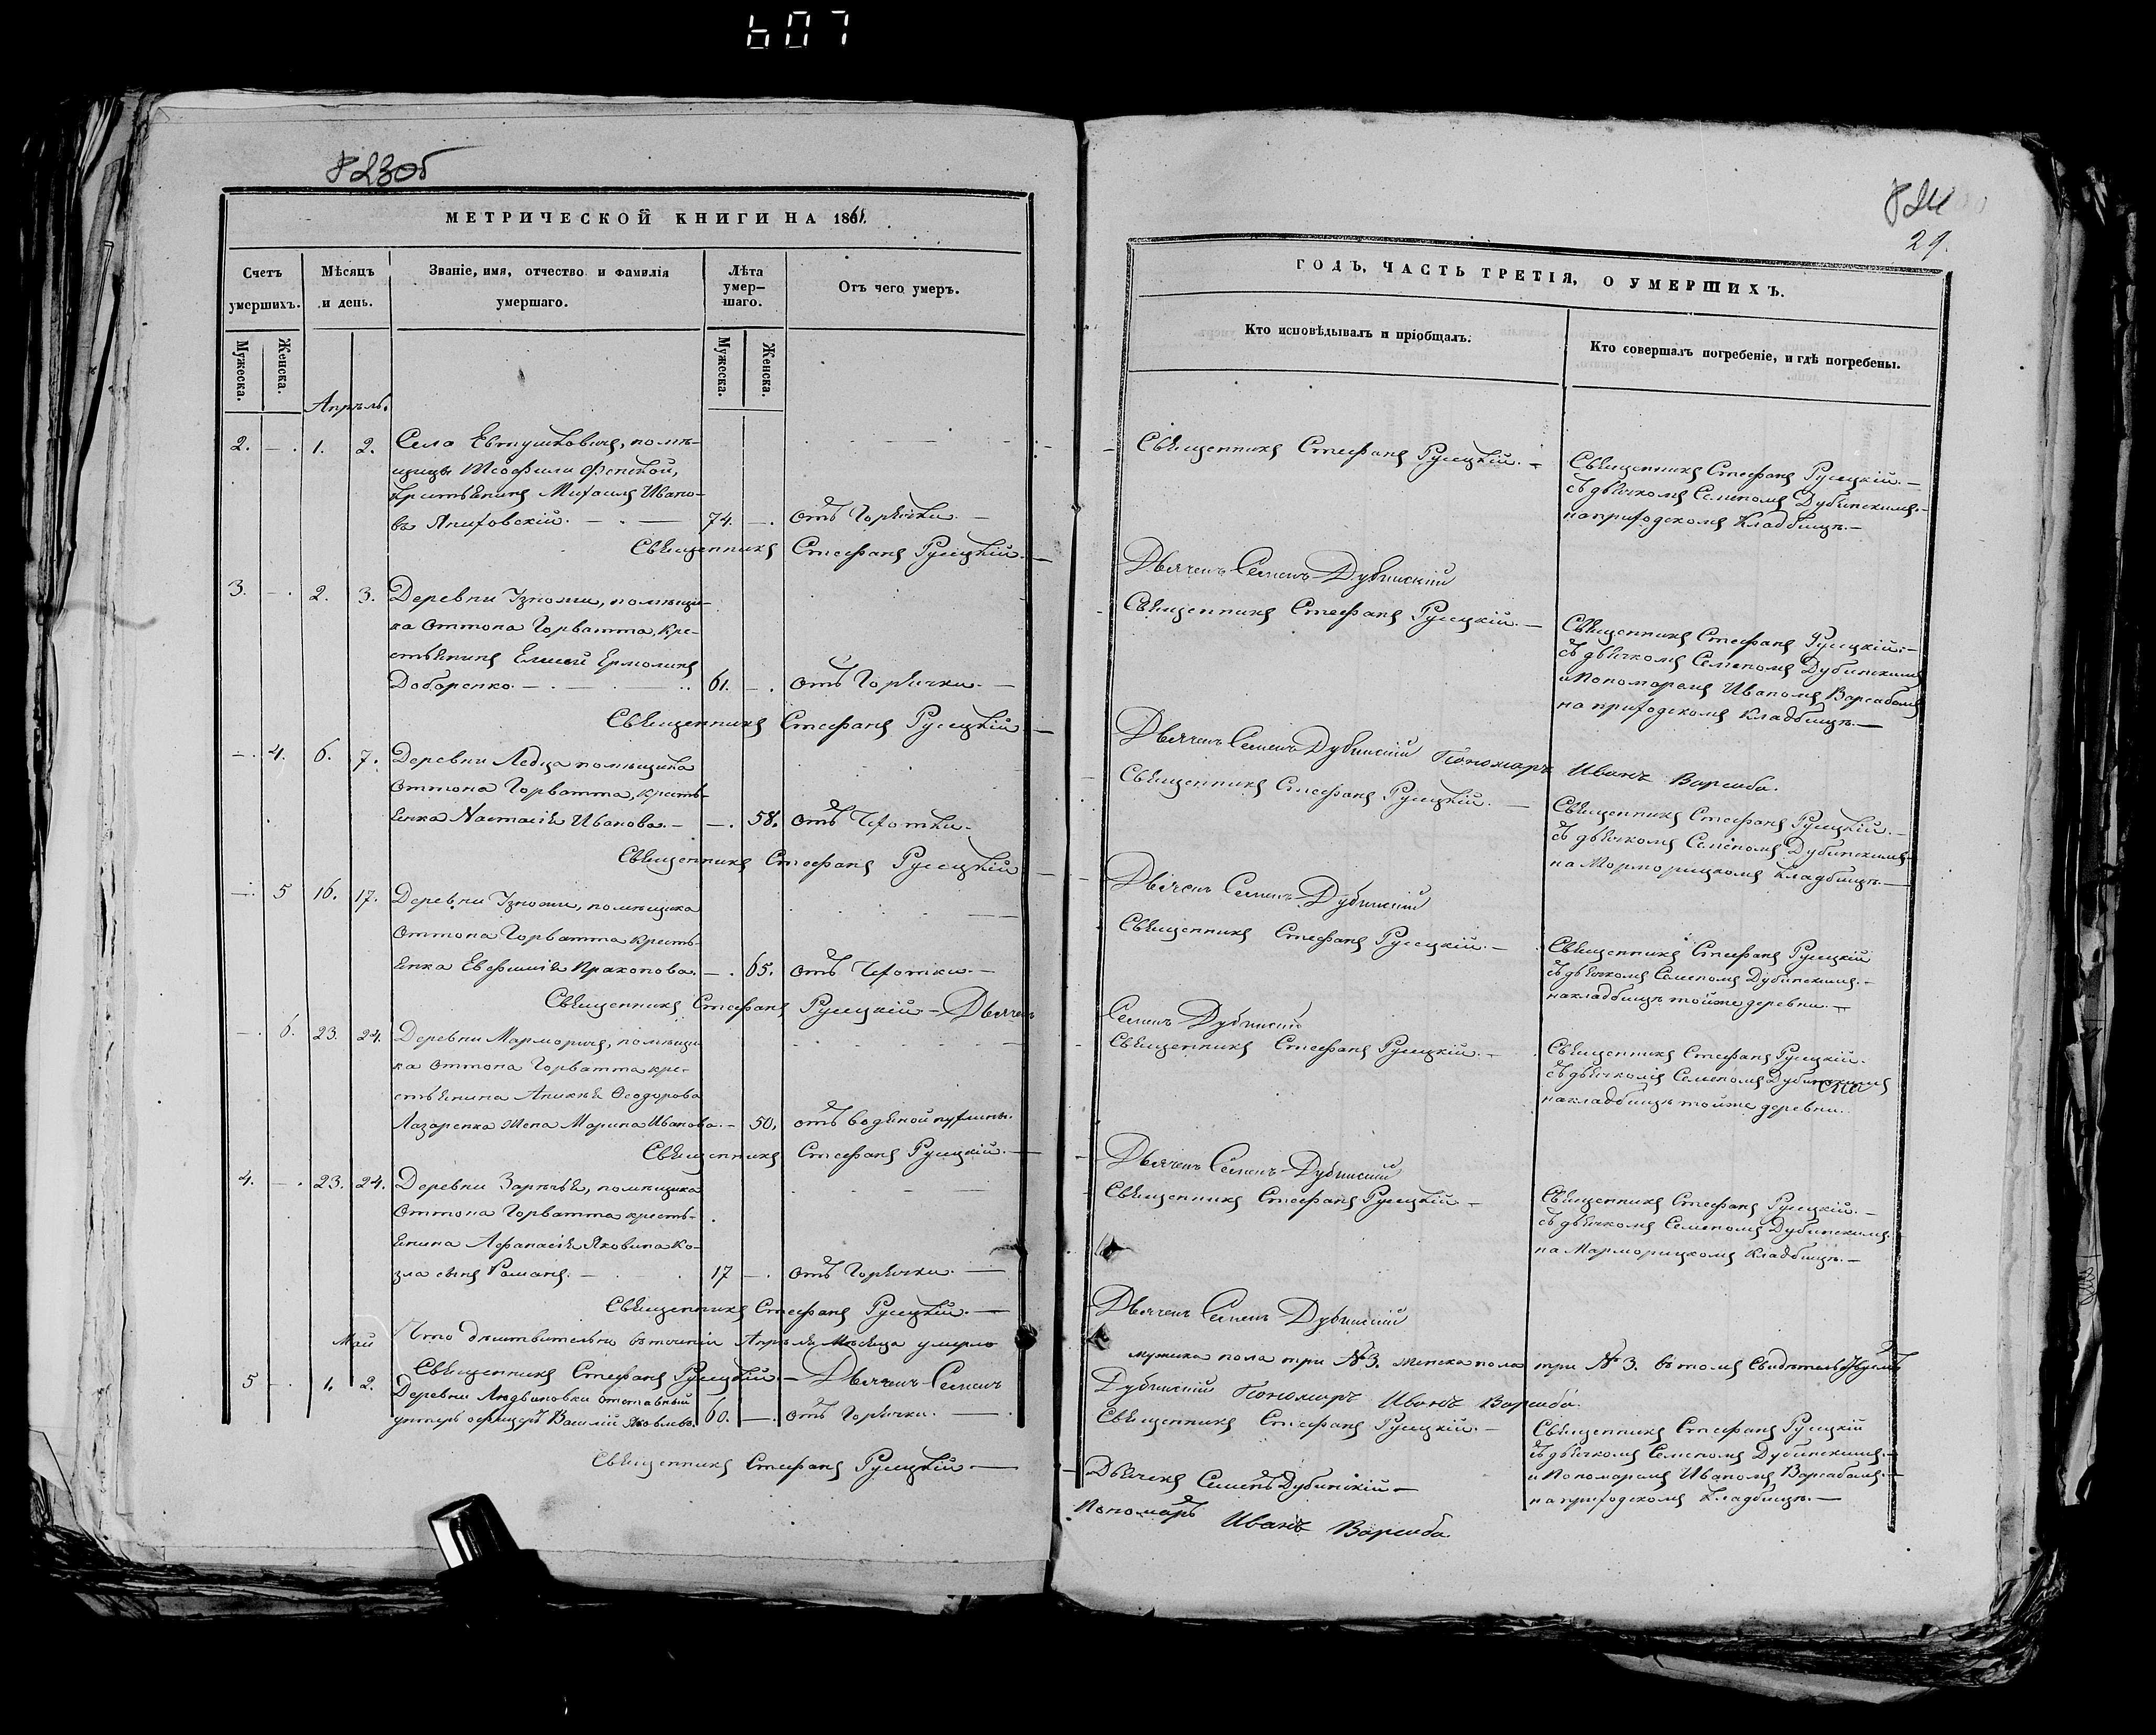 607
823об
МЕТРИЧЕСКОЙ КНИГИ НА 1861.
Счетъ умершихъ.
Мѣсяцъ и день.
Званіе, имя, отчество и фамилія умершаго.
Лѣта умер-шаго.
Отъ чего умеръ.
Мужеска.
Женска.
Мужеска.
Женска.
Апрѣль.
2. — 1. 2. Села Евтушковичъ, помѣ-
щицы Теофили
крестьянинъ Михаилъ Ивано-
въ Яниховскій. — 74. —. отъ Горячки. —
Священникъ Стефанъ Русецкій. —
3. — 2. 3. Деревни Узножи, помѣщи-
ка Оттона Горватта, кре-
стьянинъ Елисей Ермолинъ
Доборенко. — 61. —. отъ Горячки. —
Священникъ Стефанъ Русецкій —
—. 4. 6. 7. Деревни Ледца помѣщика
Оттона Горватта, кресть-
янка Настасія Иванова. — —. 58. отъ Чахотки.
Священникъ Стефанъ Русецкій
—. 5 16. 17. Деревни Узножи, помѣщика
Оттона Горватта кресть-
янка Евфимія Пракопова. —. 65. отъ Чахотки. —
Священникъ Стефанъ Русецкій — Дьячекъ
—. 6. 23. 24. Деревни Марморичъ, помѣщи-
ка Оттона Горватта кре-
стьянина Аникѣя Ѳеодорова
Лазаренка жена Марина Иванова. — 50. отъ водяной пухлины.
Священникъ Стефанъ Русецкій. —
4. —. 23. 24. Деревни Зарѣчья, помѣщика
Оттона Горватта кресть-
янина Афанасія Яковина Ко-
зла сынъ Романъ. — 17 —. отъ Горячки. —
Священникъ Стефанъ Русецкій. —
Май Что дѣйствительно въ теченіи Апрѣля мѣсяца умерло
Священникъ Стефанъ Русецкій. — Дьячекъ Семенъ
5 —. 1. 2. Деревни Людвиновки отставный
унтеръ офицеръ Василій Яковлевъ. 60. —. отъ Горячки. —
Священникъ Стефанъ Русецкій —
824
29.
ГОДЪ, ЧАСТЬ ТРЕТІЯ, О УМЕРШИХЪ.
Кто исповѣдывалъ и пріобщалъ.
Кто совершалъ погребеніе, и гдѣ погребены.
Священникъ Стефанъ Русецкій. —
Священникъ Стефанъ Русецкій. —
съ дьячкомъ Семеномъ Дубинскимъ. —
на приходскомъ кладбищѣ. —
Дьячекъ Семенъ Дубинскій
Священникъ Стефанъ Русецкій. —
Священникъ Стефанъ Русецкій. —
съ дьячкомъ Семеномъ Дубинскимъ
и Пономаремъ Иваномъ Варсабомъ
на приходскомъ кладбищѣ. —
Дьячекъ Семенъ Дубинскій Пономарь Иванъ Варсаба.
Священникъ Стефанъ Русецкій. —
Священникъ Стефанъ Русецкій. —
съ дьячкомъ Семеномъ Дубинскимъ
на Марморицкомъ кладбищѣ. —
Дьячекъ Семенъ Дубинскій
Священникъ Стефанъ Русецкій. —
Священникъ Стефанъ Русецкій
съ дьячкомъ Семеномъ Дубинскимъ. —
на кладбищѣ тойже деревни. —
Семенъ Дубинскій
Священникъ Стефанъ Русецкій. —
Священникъ Стефанъ Русецкій.
съ дьячкомъ Семеномъ Дубинскимъ
на кладбищѣ тойже деревни.
Дьячекъ Семенъ Дубинскій
Священникъ Стефанъ Русецкій —
Священникъ Стефанъ Русецкій. —
съ дьячкомъ Семеномъ Дубинскимъ.
на Марморицкомъ кладбищѣ. —
Дьячекъ Семенъ Дубинскій
мужска пола три № 3. женска пола три № 3. въ томъ свидѣтельствуемъ
Дубинскій Пономарь Иванъ Варсаба.
Священникъ Стефанъ Русецкій. —
Священникъ Стефанъ Русецкій
съ дьячкомъ Семеномъ Дубинскимъ. —
и Пономаремъ Иваномъ Варсабомъ. —
на приходскомъ кладбищѣ. —
Дьячекъ Семенъ Дубинскій —
Пономарь Иванъ Варсаба